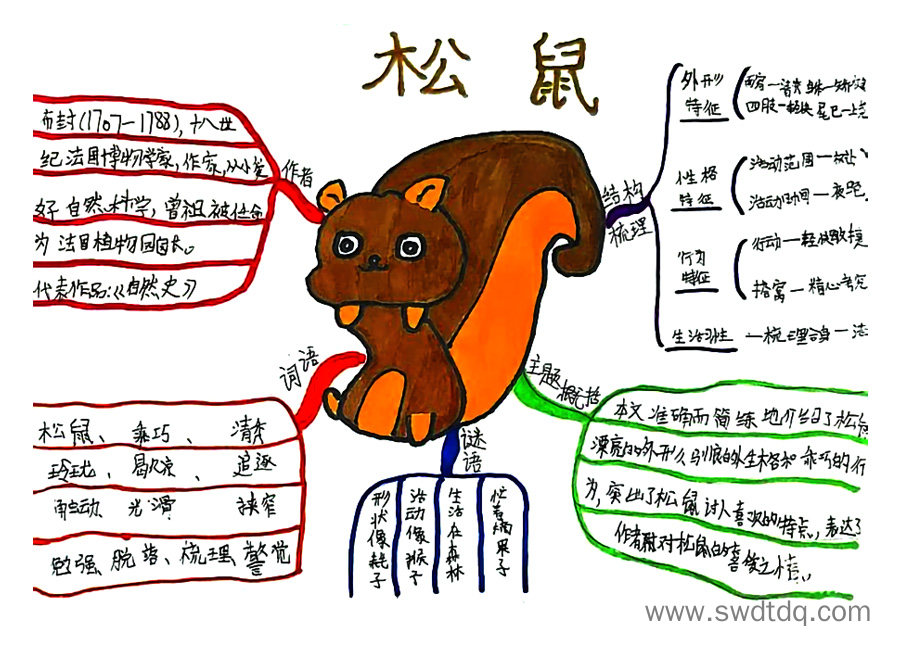 松鼠
作者
布封(1707—1788),十八世
纪法国博物学家,作家,从小爱
好自然科学,曾祖被任命
为法国植物园园长。
代表作品:《自然史》
词语
松鼠、乖巧、清秀
玲珑、追逐
光滑 狭窄
勉强、脱落、梳理、警觉
谜语
形状像耗子
活动像猴子
生活在森林
忙着摘果子
结构
梳理
外形
特征
性格
特征
活动范围一
活动时间一夜晚
行为
特征
行动一轻快敏捷
搭窝一精心考究
生活习性
一梳理全身一
主题概括
本文准确而简练地介绍了松鼠
漂亮的外形、驯良的性格和乖巧的行
为,突出了松鼠讨人喜欢的特点,表达了
作者对松鼠的喜爱之情。
www.swdtdq.com